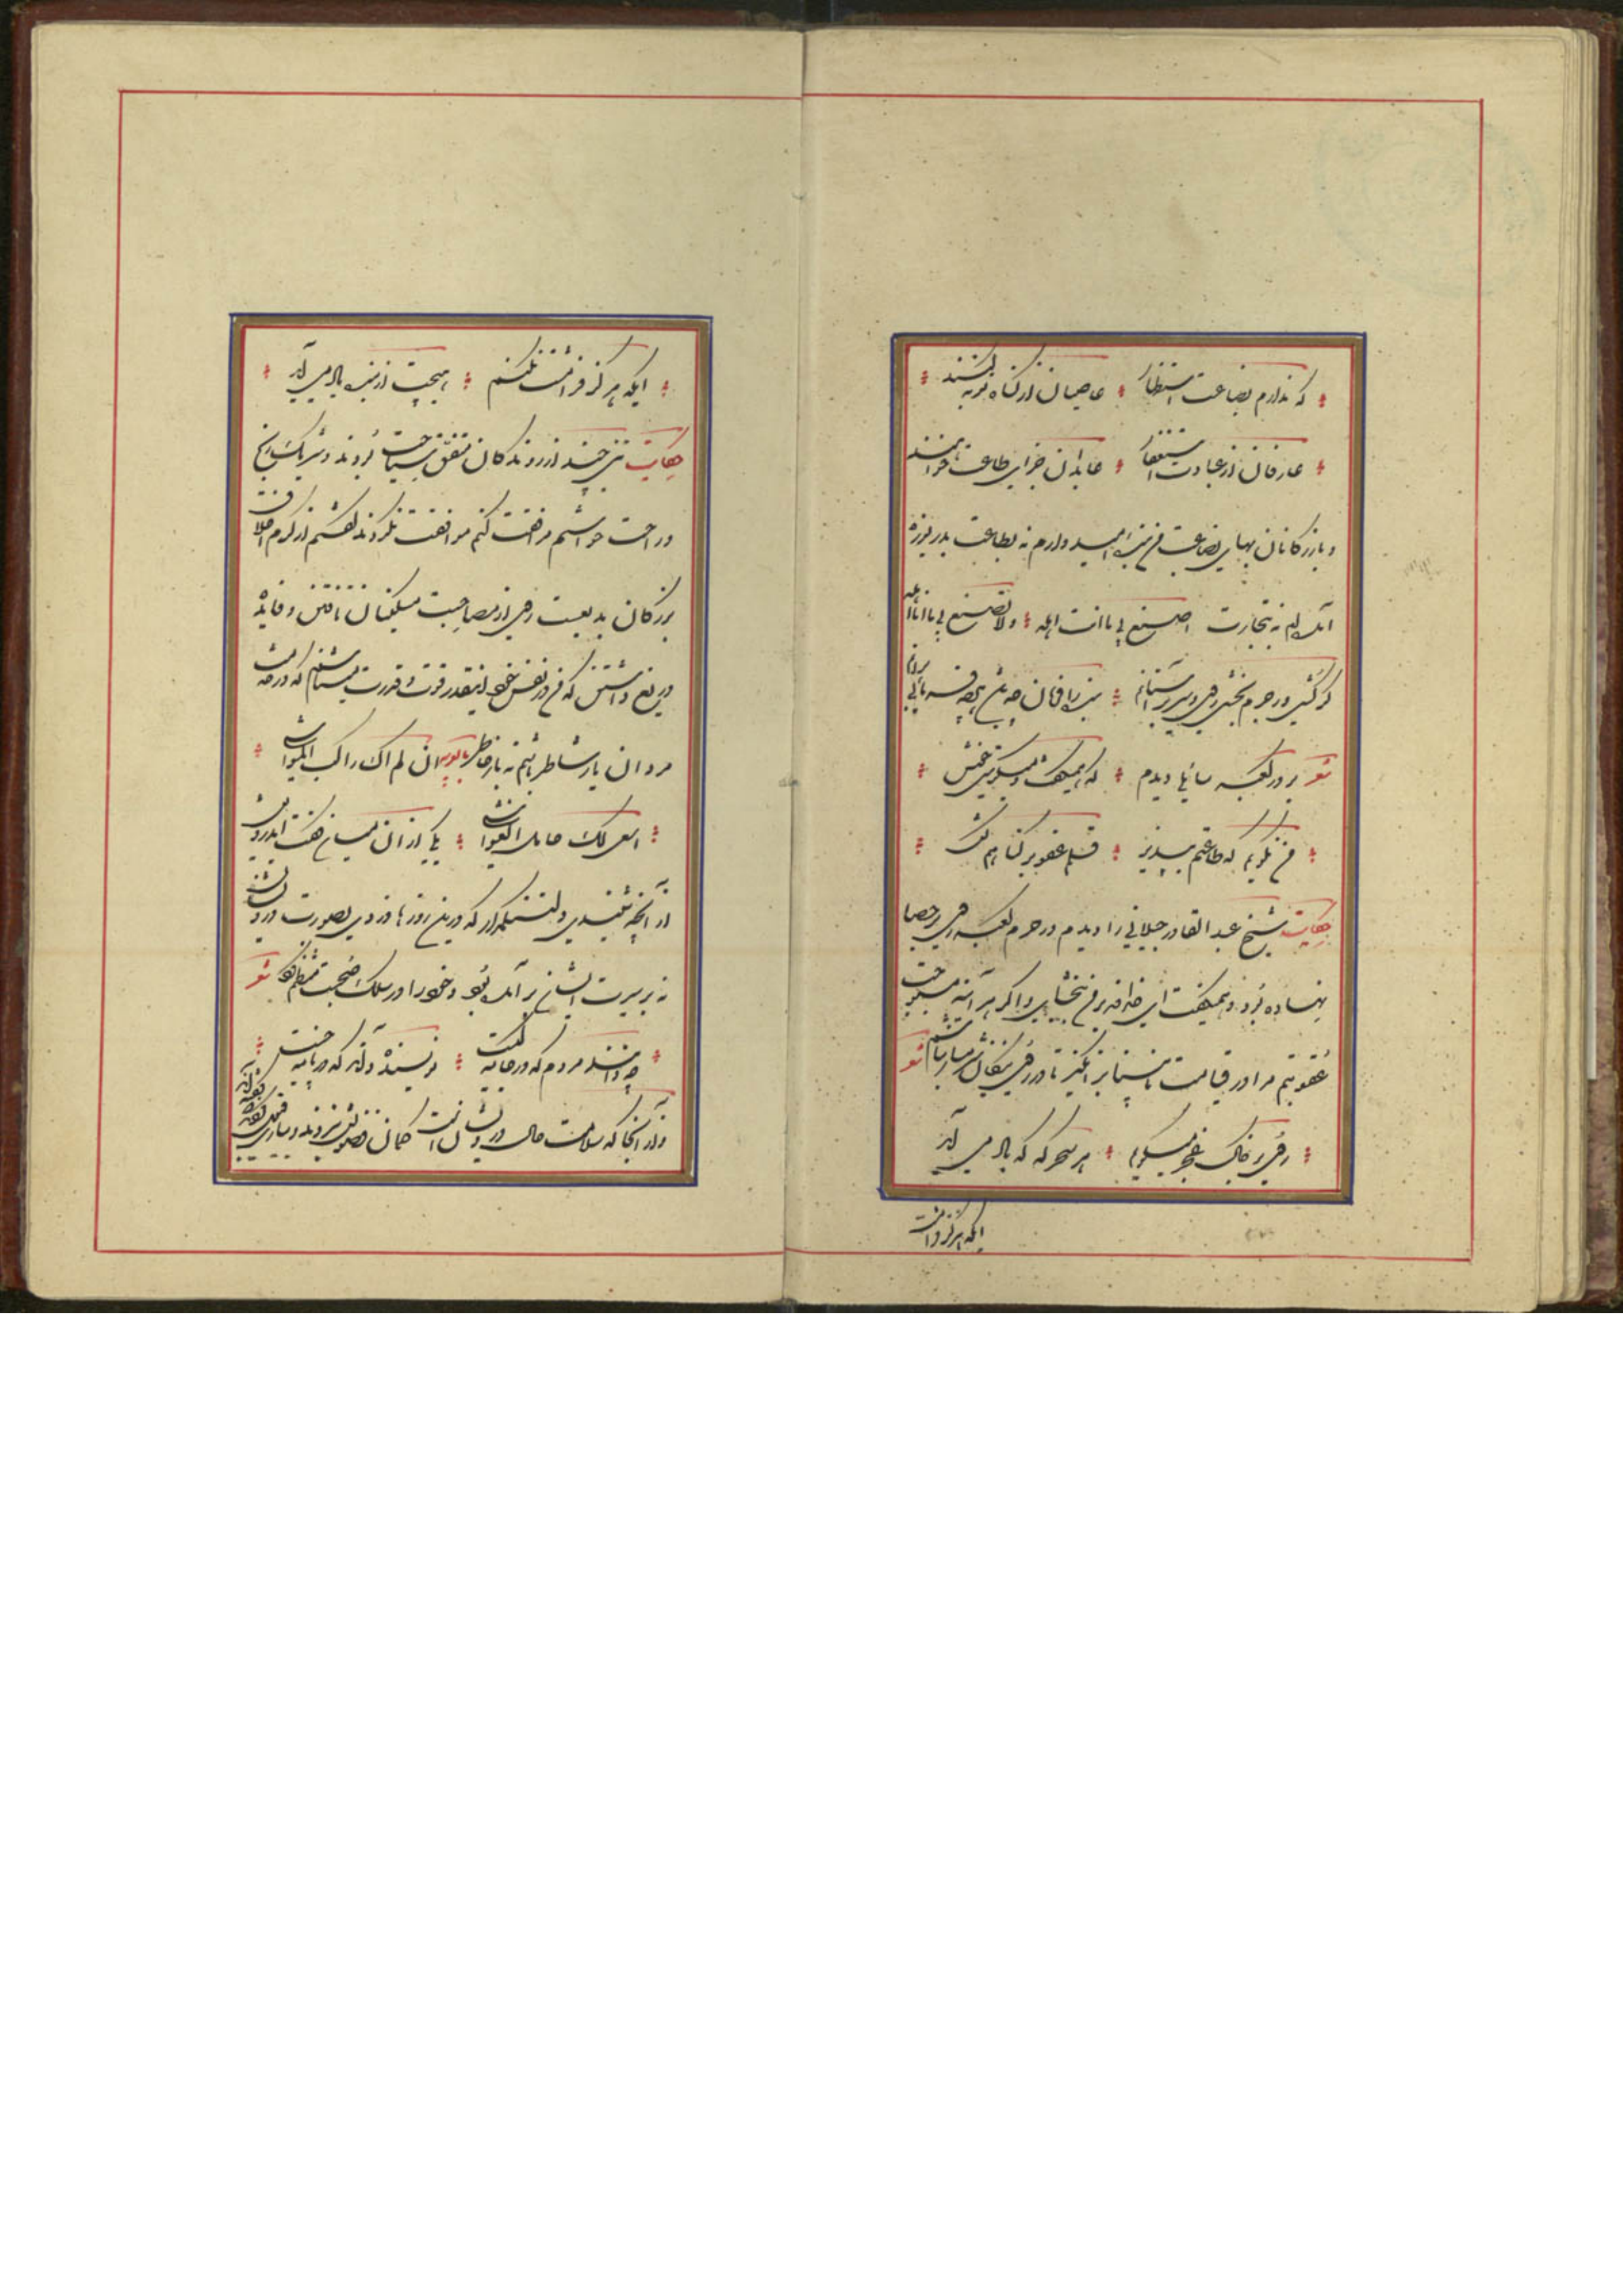 که ندارم بطاعت استظهار عاصیان از گناه توبه کنند
عارفان از عبادت استغفار عابدان جزای طاعت خواهند
و بازرگانان بهای بضاعت من بنده امید دارم نه بطاعت بدریوزه
آمده‌ام نه بتجارت اصنع بی ما انت اهله ولا تصنع بی ما انا اهله
گر کشی ور جرم بخشی روی و سر بر آستانم بنده را فرمان چه باشد هر چه فرمایی برآنم
شعر بر در کعبه سائلی دیدم که همیگفت و میگرستی خوش
من نگویم که طاعتم بپذیر قلم عفو بر گناهم کش
حکایت شیخ عبد القادر جیلانی را دیدم در حرم کعبه روی بر حصا
نهاده بود و همیگفت ای خداوند بر من ببخشای و اگر هر آینه مستوجب
عقوبتم مرا در قیامت نابینا برانگیز تا در روی نیکان شرمسار نباشم شعر
روی بر خاک عجز میگویم هر سحرگه که یاد می آید
ایکه هرگز فرامشت
ایکه هرگز فرامشت نکنم هیچت از بنده یاد می آید
حکایت تنی چند از روندگان متفق سیاحت بودند و شریک رنج
و راحت خواستم مرافقت کنم موافقت نکردند گفتم از کرم اخلاق
بزرگان بدیعست روی از مصاحبت مسکینان تافتن و فایده
دریغ داشتن که من در نفس خود اینقدر قوت و قدرت میشناسم که در خدمت
مردان یار شاطر باشم نه بار خاطر ان لم اکن راکب المواشی
اسعی لکم حامل الغواشی یکی از ان میان گفت
از آنچه شنیدی دلتنگ مدار که درین روزها دزدی بصورت درویشان
نه بر سیرت ایشان بر آمده بود و خود را در سلک صحبت ما منتظم کرد شعر
چه دانند مردم که در جامه کیست نویسنده داند که در نامه چیست
و از آنجا که سلامت حال درویشان است گمان فضولش نبردند و بیاری قبولش کردند